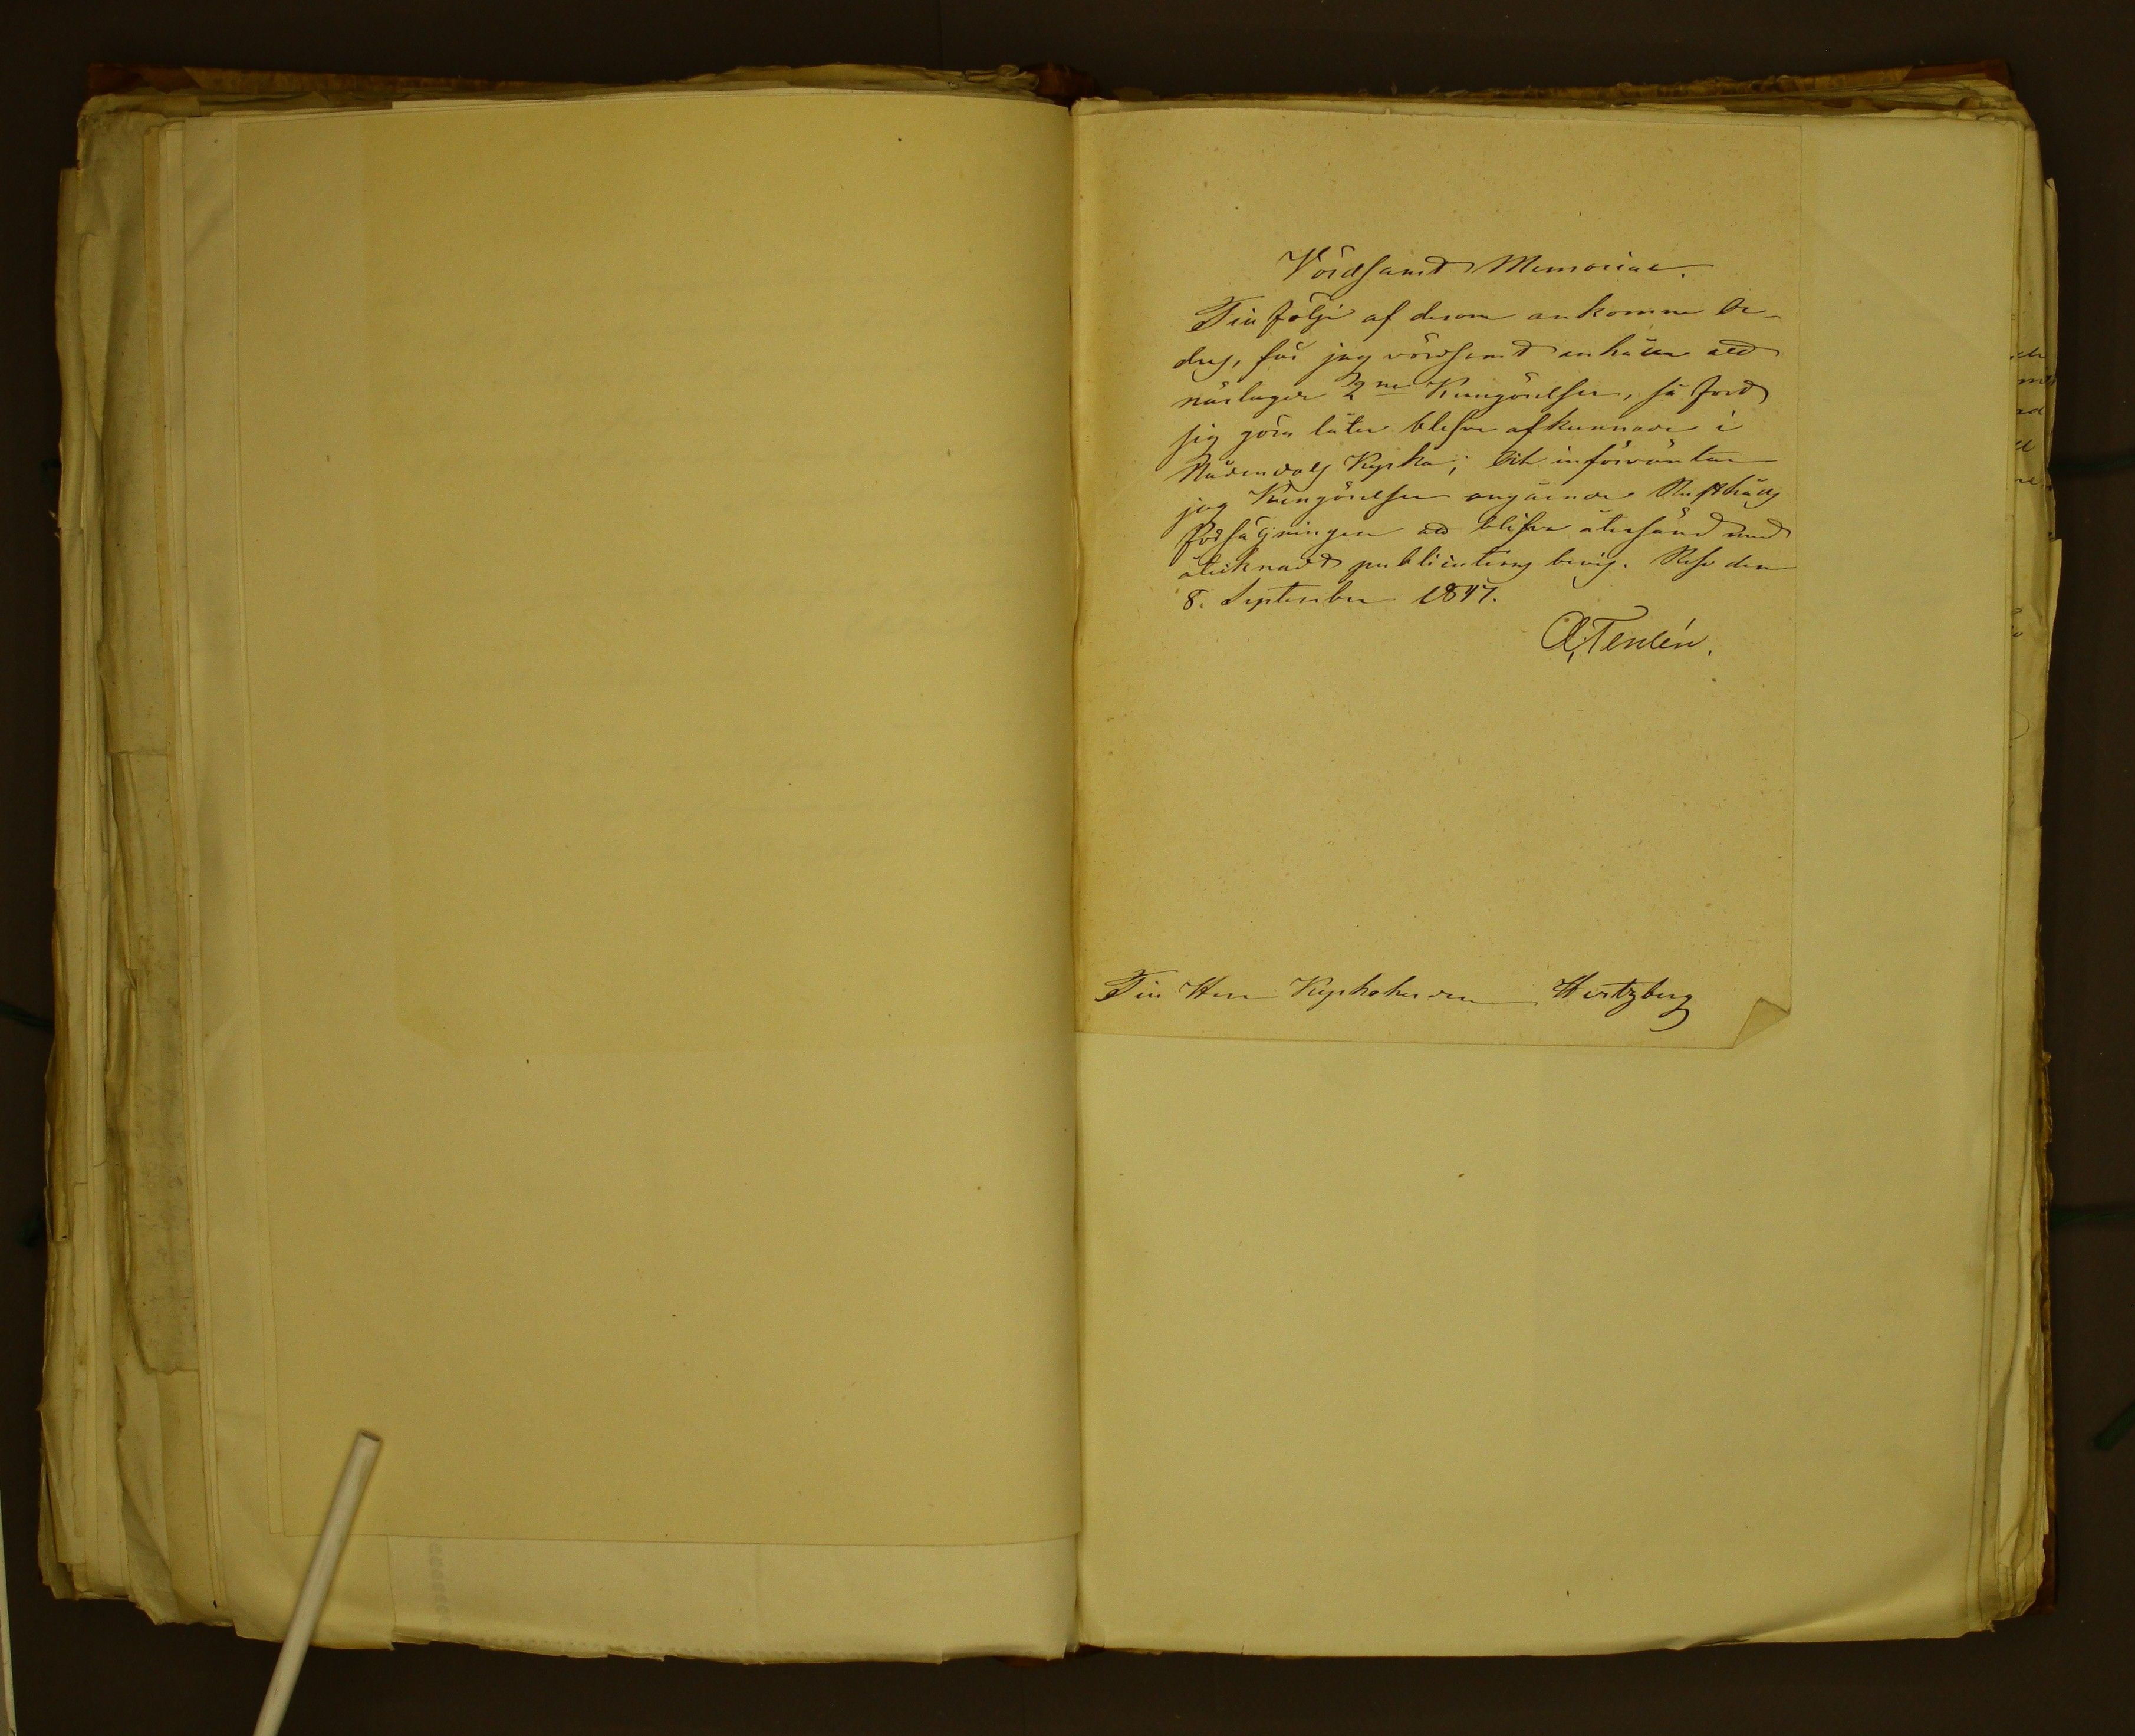 Vördsamt Memorial.
Till följe af derom ankomne Or-
dres, får jag vördsamt anhålla att
närlagde 2ne Kungörelser, så fort
sig göra låter blefve afkunnade i
Nådendals Kyrka; Och införväntar
jag Kungörelsen angående Rusthålls
försäljningen att blifva återsänd med
åtecknadt publications bevis. Reso den
8. September 1847.
A. Terlén.
Till Herr Kyrkoherden Hertzberg